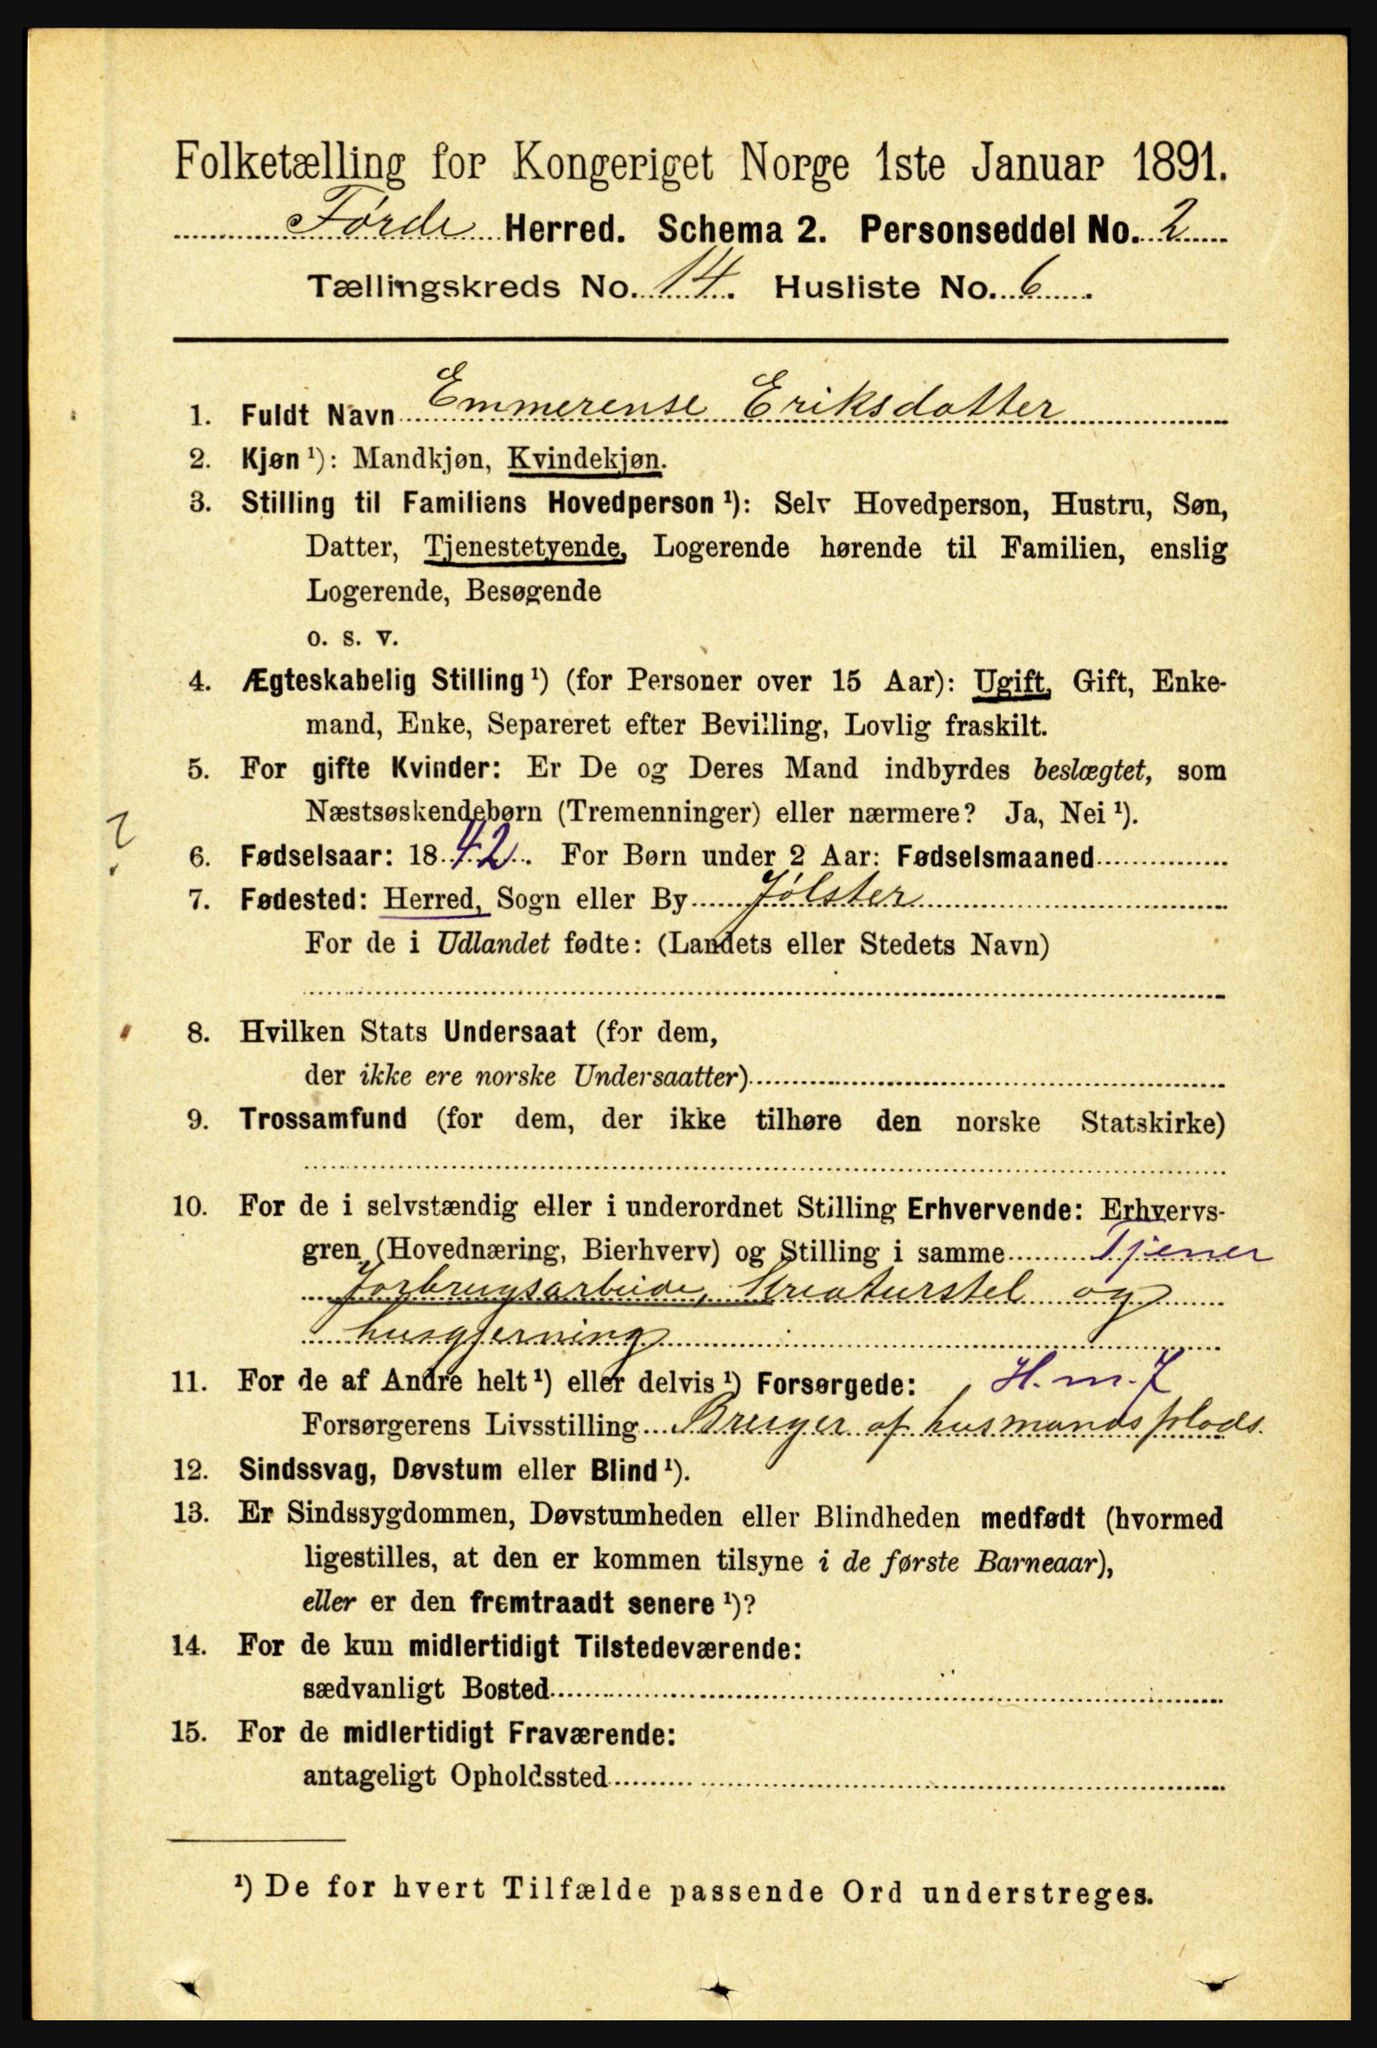 Folketælling for Kongeriget Norge 1ste Januar 1891.
Førde Herred. Schema 2. Personseddel No. 2
Tællingskreds No. 14. Husliste No. 6.
1. Fuldt Navn Emmerense Eriksdatter
2. Kjøn ¹): Mandkjøn, Kvindekjøn.
3. Stilling til Familiens Hovedperson ¹): Selv Hovedperson, Hustru, Søn,
Datter, Tjenestetyende, Logerende hørende til Familien, enslig
Logerende, Besøgende
o. s. v.
4. Ægteskabelig Stilling ¹) (for Personer over 15 Aar): Ugift, Gift, Enke-
mand, Enke, Separeret efter Bevilling, Lovlig fraskilt.
5. For gifte Kvinder: Er De og Deres Mand indbyrdes beslægtet, som
Næstsøskendebørn (Tremenninger) eller nærmere? Ja, Nei ¹).
?
6. Fødselsaar: 1842. For Børn under 2 Aar: Fødselsmaaned
7. Fødested: Herred, Sogn eller By Jølster
For de i Udlandet fødte: (Landets eller Stedets Navn)
8. Hvilken Stats Undersaat (for dem,
der ikke ere norske Undersaatter)
9. Trossamfund (for dem, der ikke tilhøre den norske Statskirke)
10. For de i selvstændig eller i underordnet Stilling Erhvervende: Erhvervs-
gren (Hovednæring, Bierhverv) og Stilling i samme Tjener
Jorbrugsarbeide, Kreaturstel og
husgjerning
11. For de af Andre helt ¹) eller delvis ¹) Forsørgede: H. m. J
Forsørgerens Livsstilling Bruger af husmandsplads.
12. Sindssvag, Døvstum eller Blind ¹).
13. Er Sindssygdommen, Døvstumheden eller Blindheden medfødt (hvormed
ligestilles, at den er kommen tilsyne i de første Barneaar),
eller er den fremtraadt senere ¹)?
14. For de kun midlertidigt Tilstedeværende:
sædvanligt Bosted
15. For de midlertidigt Fraværende:
antageligt Opholdssted
¹) De for hvert Tilfælde passende Ord understreges.